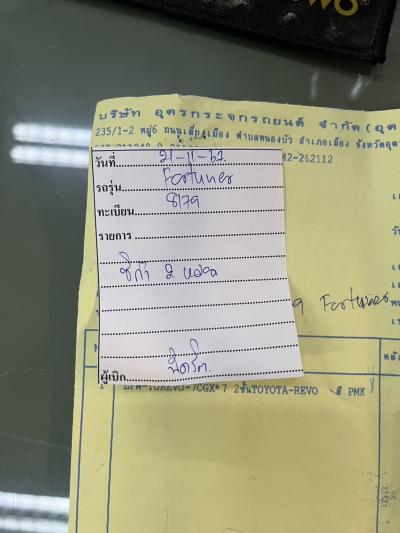 บริษัท อุดรกระจกรถยนต์ จำกัด (อุด
235/1-2 หมู่6 ถนนเลี่ยงเมือง ตำบลหนองบัว อำเภอเมือง จังหวัดอุด
42-212112
วันที่ 21-11-62
รถรุ่น Fortuner
ทะเบียน 8179
รายการ
ซิก้า 2 หลอด
Fortuner
ผู้เบิก
1 LFW-TOREVO-7CGX*7 2ชั้นTOYOTA-REVO สี PMK
คลัง